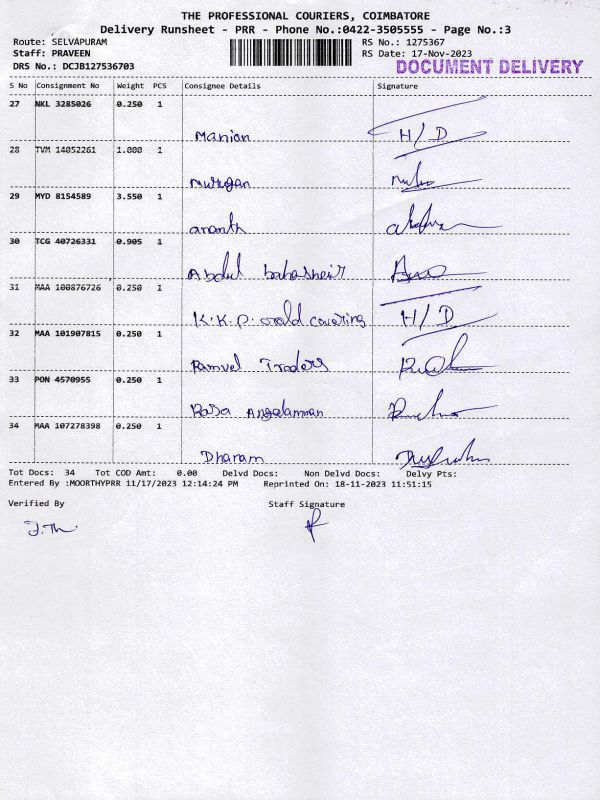 THE PROFESSIONAL COURIERS, COIMBATORE
Delivery Runsheet - PRR - Phone No.:0422-3505555 - Page No.:3
Route: SELVAPURAM RS No.: 1275367
Staff: PRAVEEN RS Date: 17-Nov-2023
DRS No.: DCJB127536703 DOCUMENT DELIVERY
S No Consignment No Weight PCS Consignee Details Signature
27 NKL 3285026 0.250 1
Manian H/D
28 TVM 14052261 1.000 1
Murugan
29 MYD 8154589 3.550 1
ananth
30 TCG 40726331 0.905 1
Abdul
31 MAA 100876726 0.250 1
K.K.P. covering H/D
32 MAA 101907815 0.250 1
Ramvel Traders
33 PON 4570955 0.250 1
Rasa Angalamman
34 MAA 107278398 0.250 1
Dharam
Tot Docs: 34 Tot COD Amt: 0.00 Delvd Docs: Non Delvd Docs: Delvy Pts:
Entered By :MOORTHYPRR 11/17/2023 12:14:24 PM Reprinted On: 18-11-2023 11:51:15
Verified By Staff Signature